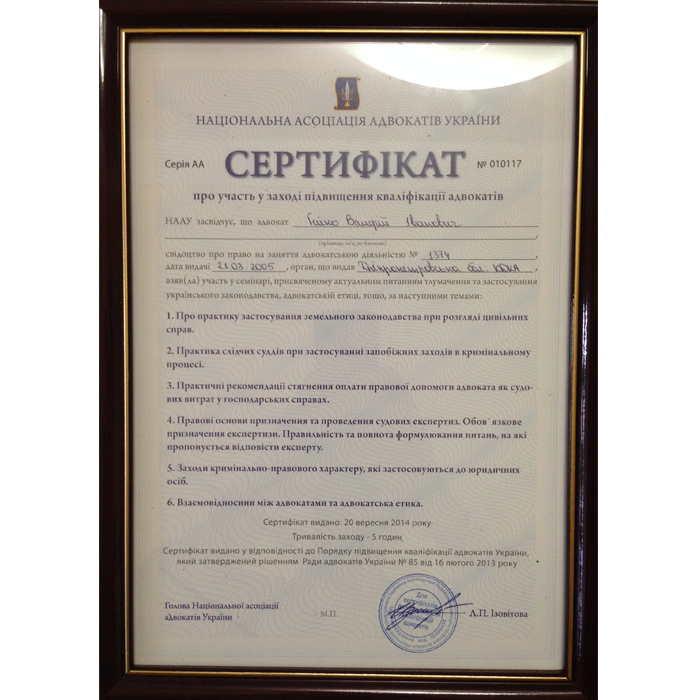 НАЦІОНАЛЬНА АСОЦІАЦІЯ АДВОКАТІВ УКРАЇНИ
Серія АА СЕРТИФІКАТ № 010117
про участь у заході підвищення кваліфікації адвокатів
НААУ засвідчує, що адвокат Іванович
(прізвище, ім'я, по батькові)
свідоцтво про право на заняття адвокатською діяльністю № 1374
дата видачі 21.03.2005, орган, що видав Дніпропетровська обл. КДКА,
взяв(ла) участь у семінарі, присвяченому актуальним питанням тлумачення та застосування
українського законодавства, адвокатській етиці, тощо, за наступними темами:
1. Про практику застосування земельного законодавства при розгляді цивільних
справ.
2. Практика слідчих суддів при застосуванні запобіжних заходів в кримінальному
процесі.
3. Практичні рекомендації стягнення оплати правової допомоги адвоката як судо-
вих витрат у господарських справах.
4. Правові основи призначення та проведення судових експертиз. Обов`язкове
призначення експертизи. Правильність та повнота формулювання питань, на які
пропонується відповісти експерту.
5. Заходи кримінально-правового характеру, які застосовуються до юридичних
осіб.
6. Взаємовідносини між адвокатами та адвокатська етика.
Сертифікат видано: 20 вересня 2014 року
Тривалість заходу - 5 годин
Сертифікат видано у відповідності до Порядку підвищення кваліфікації адвокатів України,
який затверджений рішенням Ради адвокатів України № 85 від 16 лютого 2013 року
Голова Національної асоціації
адвокатів України М.П. Л.П. Ізовітова
Для
сертифікатів